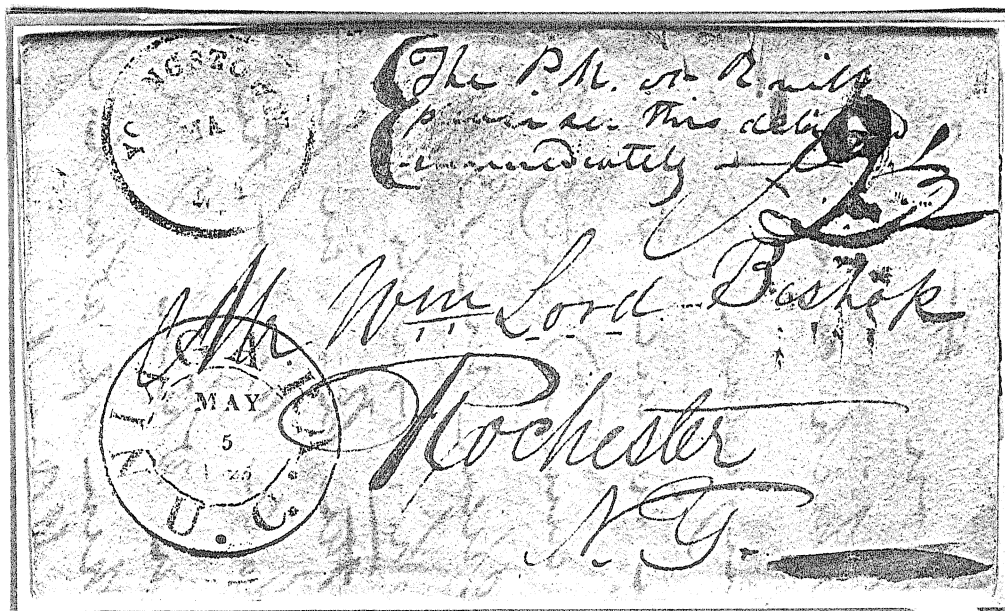 YOUNGSTOWN
MA
The P.M. at R will
please see this delivered
immediately
Mr. Wm Lord Bishop
Rochester
N.Y.
NIAGARA
MAY
5
U.C.